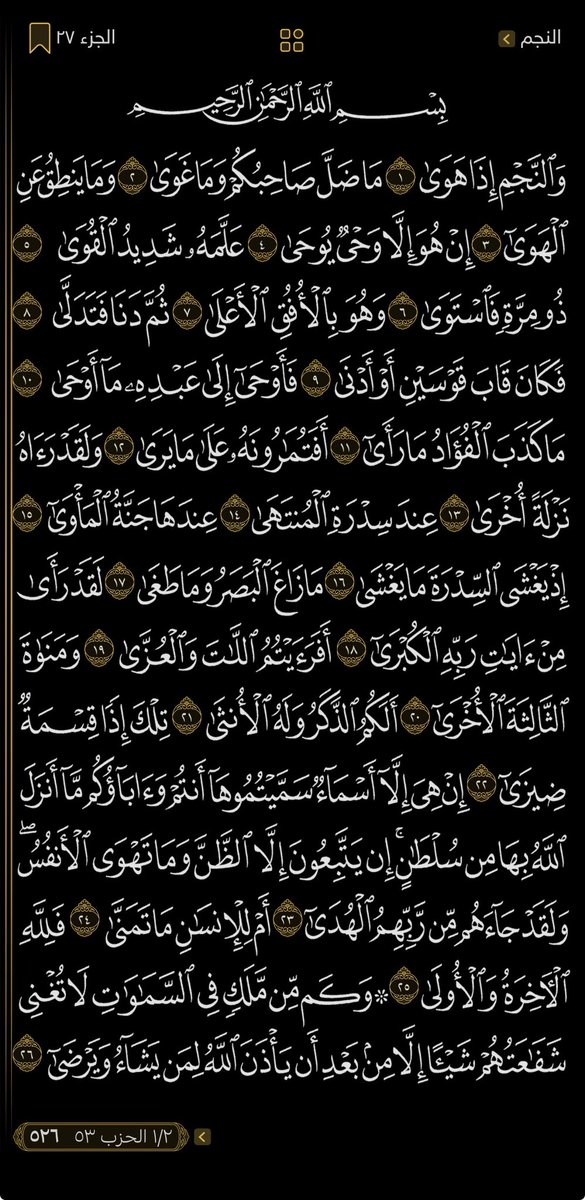 النجم
الجزء ٢٧
بِسْمِ ٱللَّهِ ٱلرَّحْمَٰنِ ٱلرَّحِيمِ
وَٱلنَّجْمِ إِذَا هَوَىٰ ١ مَا ضَلَّ صَاحِبُكُمْ وَمَا غَوَىٰ ٢ وَمَا يَنطِقُ عَنِ
ٱلْهَوَىٰٓ ٣ إِنْ هُوَ إِلَّا وَحْىٌ يُوحَىٰ ٤ عَلَّمَهُۥ شَدِيدُ ٱلْقُوَىٰ ٥
ذُو مِرَّةٍ فَٱسْتَوَىٰ ٦ وَهُوَ بِٱلْأُفُقِ ٱلْأَعْلَىٰ ٧ ثُمَّ دَنَا فَتَدَلَّىٰ ٨
فَكَانَ قَابَ قَوْسَيْنِ أَوْ أَدْنَىٰ ٩ فَأَوْحَىٰٓ إِلَىٰ عَبْدِهِۦ مَآ أَوْحَىٰ ١٠
مَا كَذَبَ ٱلْفُؤَادُ مَا رَأَىٰٓ ١١ أَفَتُمَٰرُونَهُۥ عَلَىٰ مَا يَرَىٰ ١٢ وَلَقَدْ رَءَاهُ
نَزْلَةً أُخْرَىٰ ١٣ عِندَ سِدْرَةِ ٱلْمُنتَهَىٰ ١٤ عِندَهَا جَنَّةُ ٱلْمَأْوَىٰٓ ١٥
إِذْ يَغْشَى ٱلسِّدْرَةَ مَا يَغْشَىٰ ١٦ مَا زَاغَ ٱلْبَصَرُ وَمَا طَغَىٰ ١٧ لَقَدْ رَأَىٰ
مِنْ ءَايَٰتِ رَبِّهِ ٱلْكُبْرَىٰٓ ١٨ أَفَرَءَيْتُمُ ٱللَّٰتَ وَٱلْعُزَّىٰ ١٩ وَمَنَوٰةَ
ٱلثَّالِثَةَ ٱلْأُخْرَىٰٓ ٢٠ أَلَكُمُ ٱلذَّكَرُ وَلَهُ ٱلْأُنثَىٰ ٢١ تِلْكَ إِذًا قِسْمَةٌ
ضِيزَىٰٓ ٢٢ إِنْ هِىَ إِلَّآ أَسْمَآءٌ سَمَّيْتُمُوهَآ أَنتُمْ وَءَابَآؤُكُم مَّآ أَنزَلَ
ٱللَّهُ بِهَا مِن سُلْطَٰنٍ ۚ إِن يَتَّبِعُونَ إِلَّا ٱلظَّنَّ وَمَا تَهْوَى ٱلْأَنفُسُ ۖ
وَلَقَدْ جَآءَهُم مِّن رَّبِّهِمُ ٱلْهُدَىٰٓ ٢٣ أَمْ لِلْإِنسَٰنِ مَا تَمَنَّىٰ ٢٤ فَلِلَّهِ
ٱلْءَاخِرَةُ وَٱلْأُولَىٰ ٢٥ ۞ وَكَم مِّن مَّلَكٍ فِى ٱلسَّمَٰوَٰتِ لَا تُغْنِى
شَفَٰعَتُهُمْ شَيْـًٔا إِلَّا مِنۢ بَعْدِ أَن يَأْذَنَ ٱللَّهُ لِمَن يَشَآءُ وَيَرْضَىٰٓ ٢٦
١/٢ الحزب ٥٣ ٥٢٦